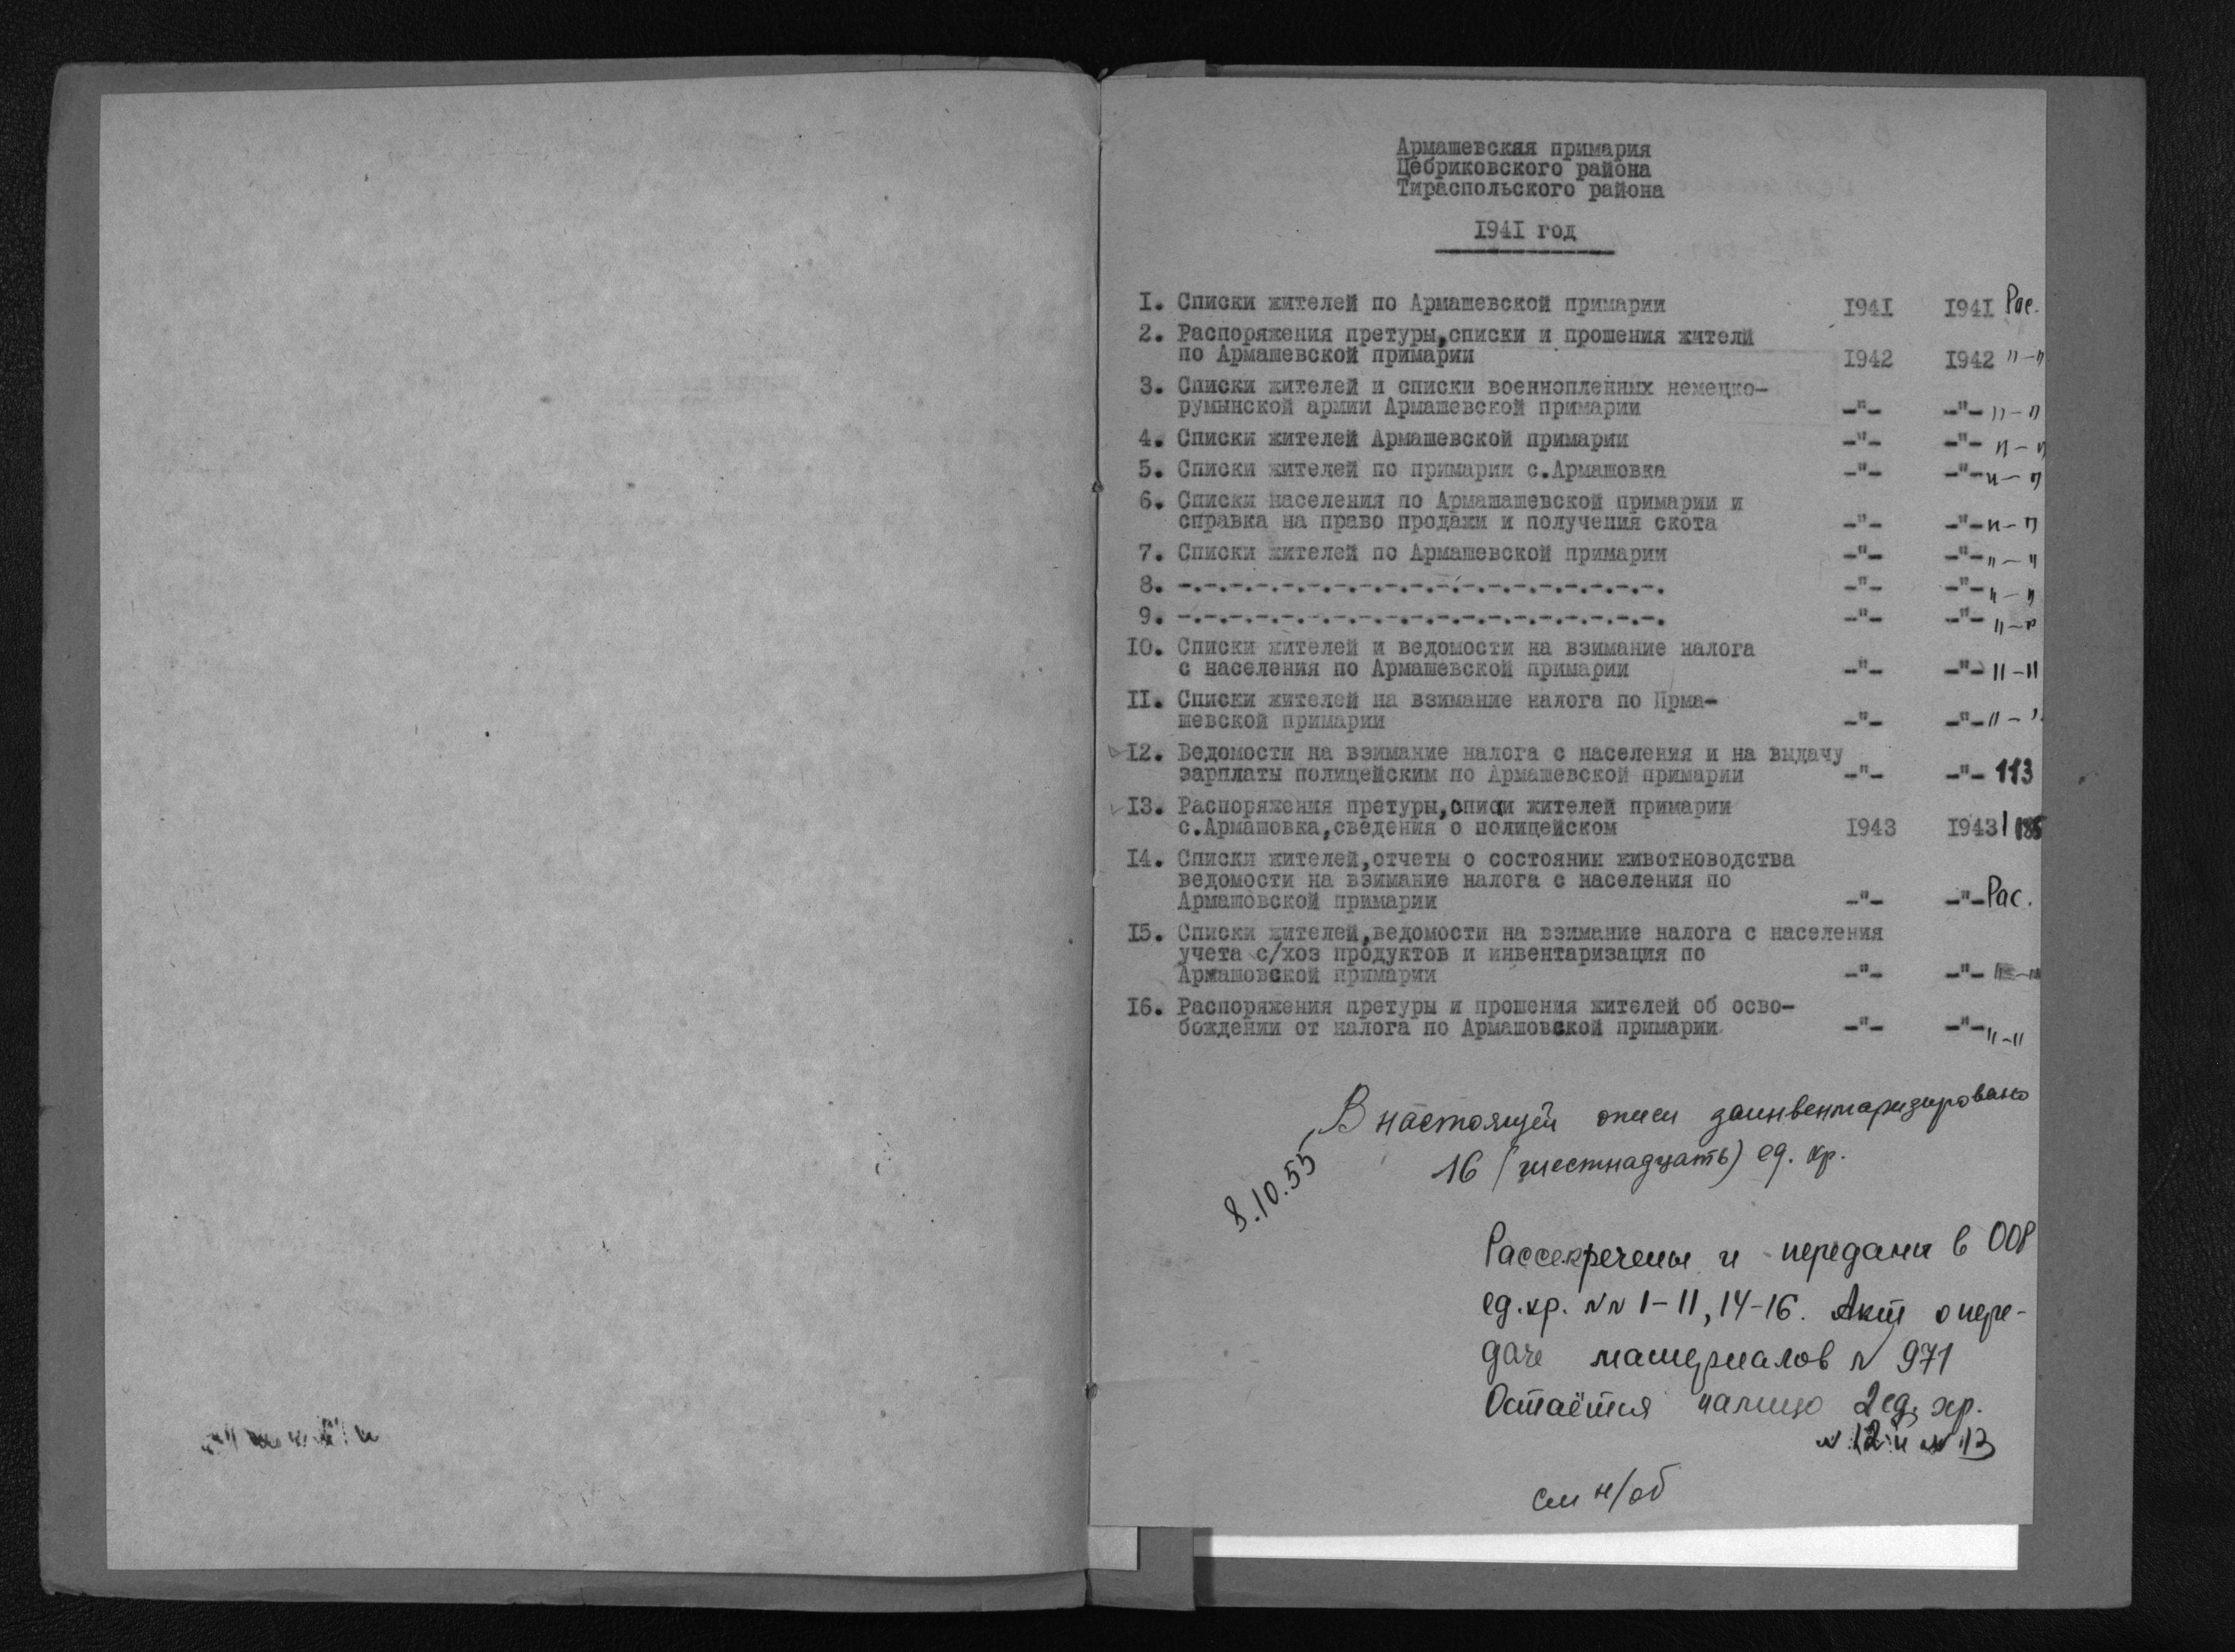 Армашевская примария
Цебриковского района
Тираспольского района
1941 год
1. Списки жителей по Армашевской примарии 1941 1941 Рас.
2. Распоряжения претуры,списки и прошения жители
по Армашевской примарии 1942 1942 "-"
3. Списки жителей и списки военнопленных немецко-
румынской армии Армашевской примарии -"- -"- "-"
4. Списки жителей Армашевской примарии -"- -"- "-"
5. Списки жителей по примарии с.Армашовка -"- -"- "-"
6. Списки населения по Армашашевской примарии и
справка на право продажи и получения скота -"- -"- "-"
7. Списки жителей по Армашевской примарии -"- -"- "-"
8. -.-.-.-.-.-.-.-.-.-.-.-.-.-.-.-.-.-.-.-. -"- -"- "-"
9. -.-.-.-.-.-.-.-.-.-.-.-.-.-.-.-.-.-.-.-. -"- -"- "-"
10. Списки жителей и ведомости на взимание налога
с населения по Армашевской примарии -"- -"- "-"
11. Списки жителей на взимание налога по Прма-
шевской примарии -"- -"- "-"
12. Ведомости на взимание налога с населения и на выдачу
зарплаты полицейским по Армашевской примарии -"- -"- 113
13. Распоряжения претуры,списи жителей примарии
с.Армашовка,сведения о полицейском 1943 1943
14. Списки жителей,отчеты о состоянии животноводства
ведомости на взимание налога с населения по
Армашовской примарии -"- -"- Рас.
15. Списки жителей,ведомости на взимание налога с населения
учета с/хоз продуктов и инвентаризация по
Армашовской примарии -"- -"- "-"
16. Распоряжения претуры и прошения жителей об осво-
бождении от налога по Армашовской примарии -"- -"- "-"
В настоящей описи заинвентаризировано
16 (шестнадцать) ед. хр.
8.10.55
Рассекречены и переданы в ООФ
ед.хр. NN 1-11, 14-16. Акт о пере-
даче материалов N 971
Остаётся налицо 2 ед. хр.
N 12 и N 13
см н/об